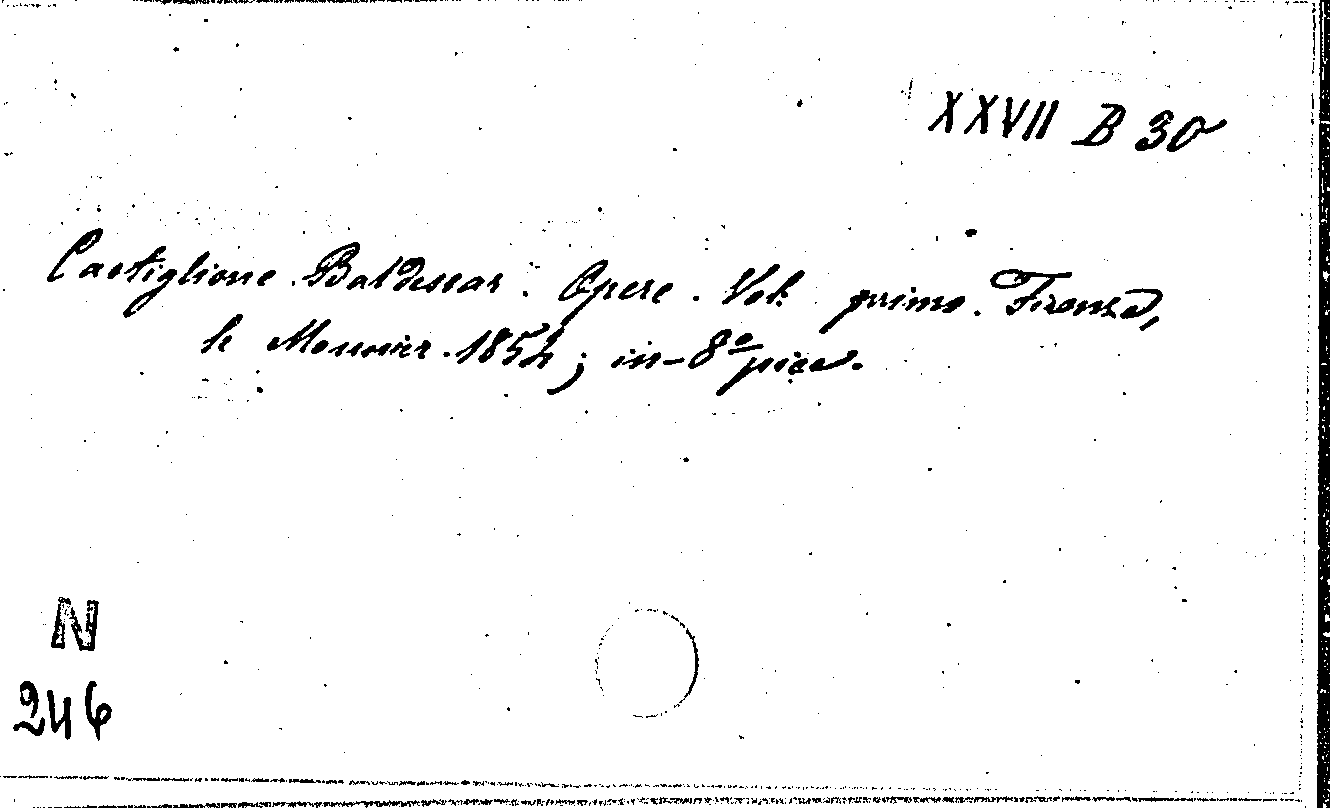 XXVII B 30
Castiglione Baldessar. Opere. Vol. primo. Firenze,
le Monnier. 1854; in-8º picc.
N
246